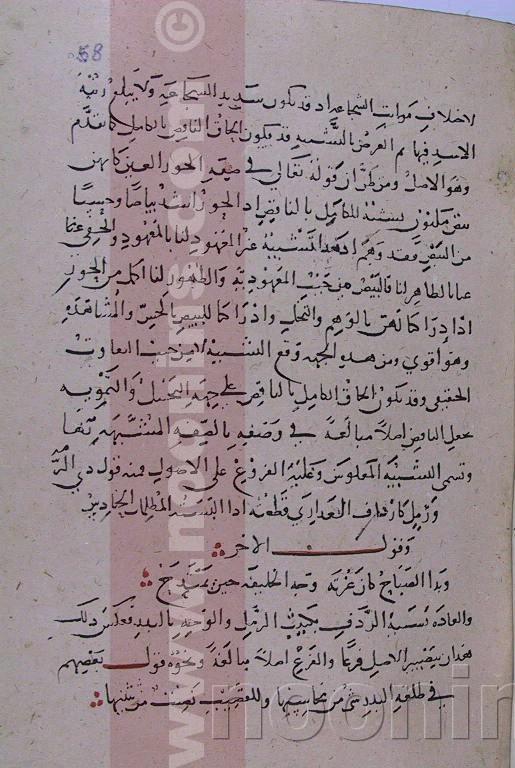 58
لاختلاف مراتب الشجاعة اذ قد يكون شديد الشجاعة ولا يبلغ رتبة
الاسد فيها ثم الغرض بالتشبيه قد يكون الحاق الناقص بالكامل كما تقدم
وهو الاصل ومن ان قوله تعالى في صفة الحور العين كانهن
بيض مكنون تشبيه للكامل بالناقص اذ الحور اشد بياضا وحسنا
من البيض فقد وهم اذ هذا التشبيه غير المعهود لنا بالمعهود والخفي عنا
بالظاهر لنا فالبيض من حيث المعهودية والظهور لنا اكمل من الحور
اذ ادراكا لهن بالوهم والتخيل وادراكا للبيض بالحس والمشاهدة
وهو اقوى ومن هذه الجهة وقع التشبيه لا من حيث التفاوت
الحقيقي وقد يكون الحاق الكامل بالناقص على جهة التخييل والتمويه
بجعل الناقص اصلا مبالغة في وصفه بالصفة المشتبهة
وتسمى التشبيه المعكوس وغلبة الفروع على الاصول فمنه قول ذي الرمة
ورمل كارداف العذارى قطعته اذا البسته المظلمات الحنادس
وقول الاخر
وبدا الصباح كان غرته وجه الخليفة حين يمتدح
والعادة تشبيه الردف بكثيب الرمل والوجه بالبدر فعكس ذلك
بتصيير الاصل فرعا والفرع اصلا مبالغة ونحوه قول بعضهم
في طلعة البدر شيء من محاسنها وللقضيب نصيب من تثنيها
www.noorlib.com
©
noorlib